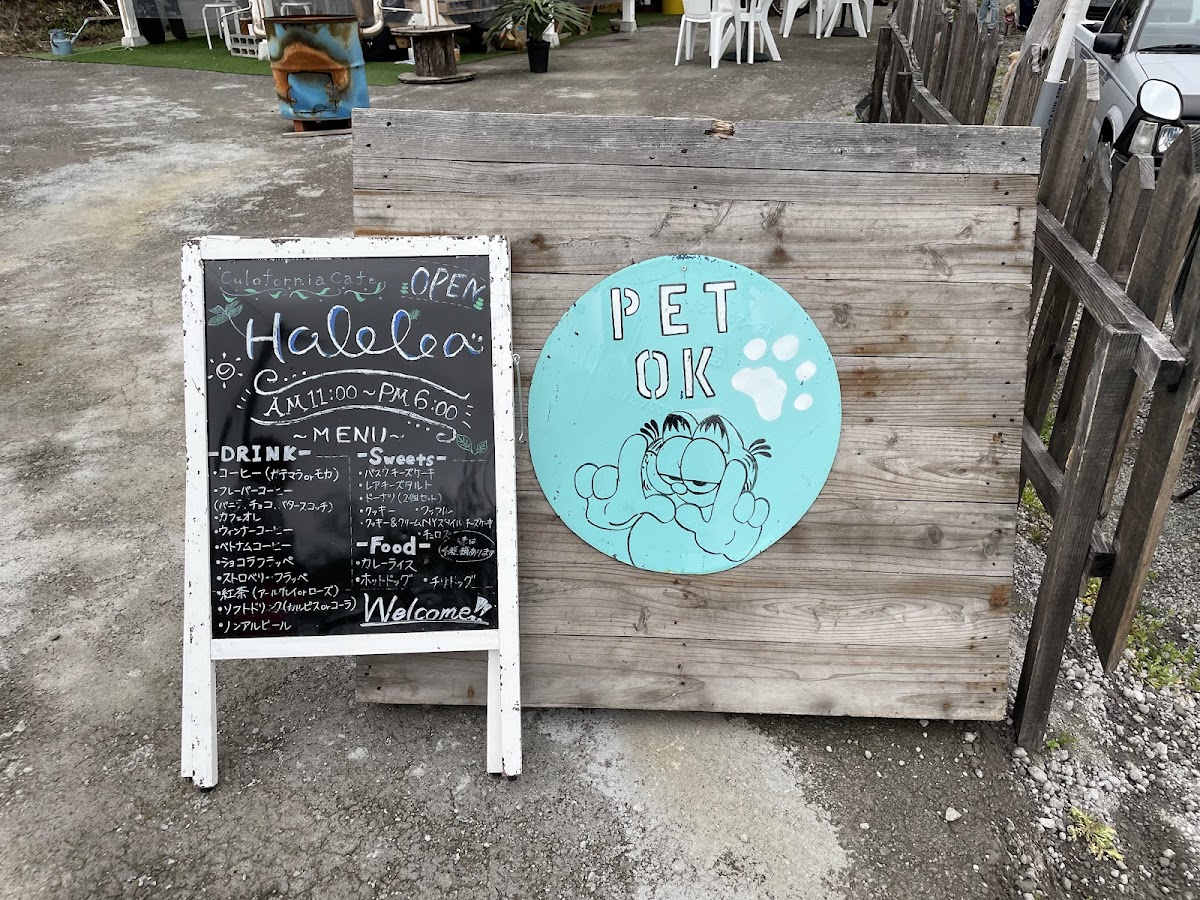 Culofornia Cafe
OPEN
Halelea
AM 11:00~PM 6:00
~MENU~
-DRINK-
・コーヒー(ガテマラorモカ)
・フレーバーコーヒー
(バニラ、チョコ、バタースコッチ)
・カフェオレ
・ウィンナーコーヒー
・ベトナムコーヒー
・ショコラフラッペ
・ストロベリーフラッペ
・紅茶(アールグレイorローズ)
・ソフトドリンク(カルピスorコーラ)
・ノンアルビール
-Sweets-
・バスクチーズケーキ
・レアチーズタルト
・ドーナツ(2個セット)
・クッキー ・ワッフル
・クッキー&クリームNYスタイルチーズケーキ
・チュロス
-Food-
・カレーライス
・ホットドッグ ・チリドッグ
Welcome!!
PET
OK